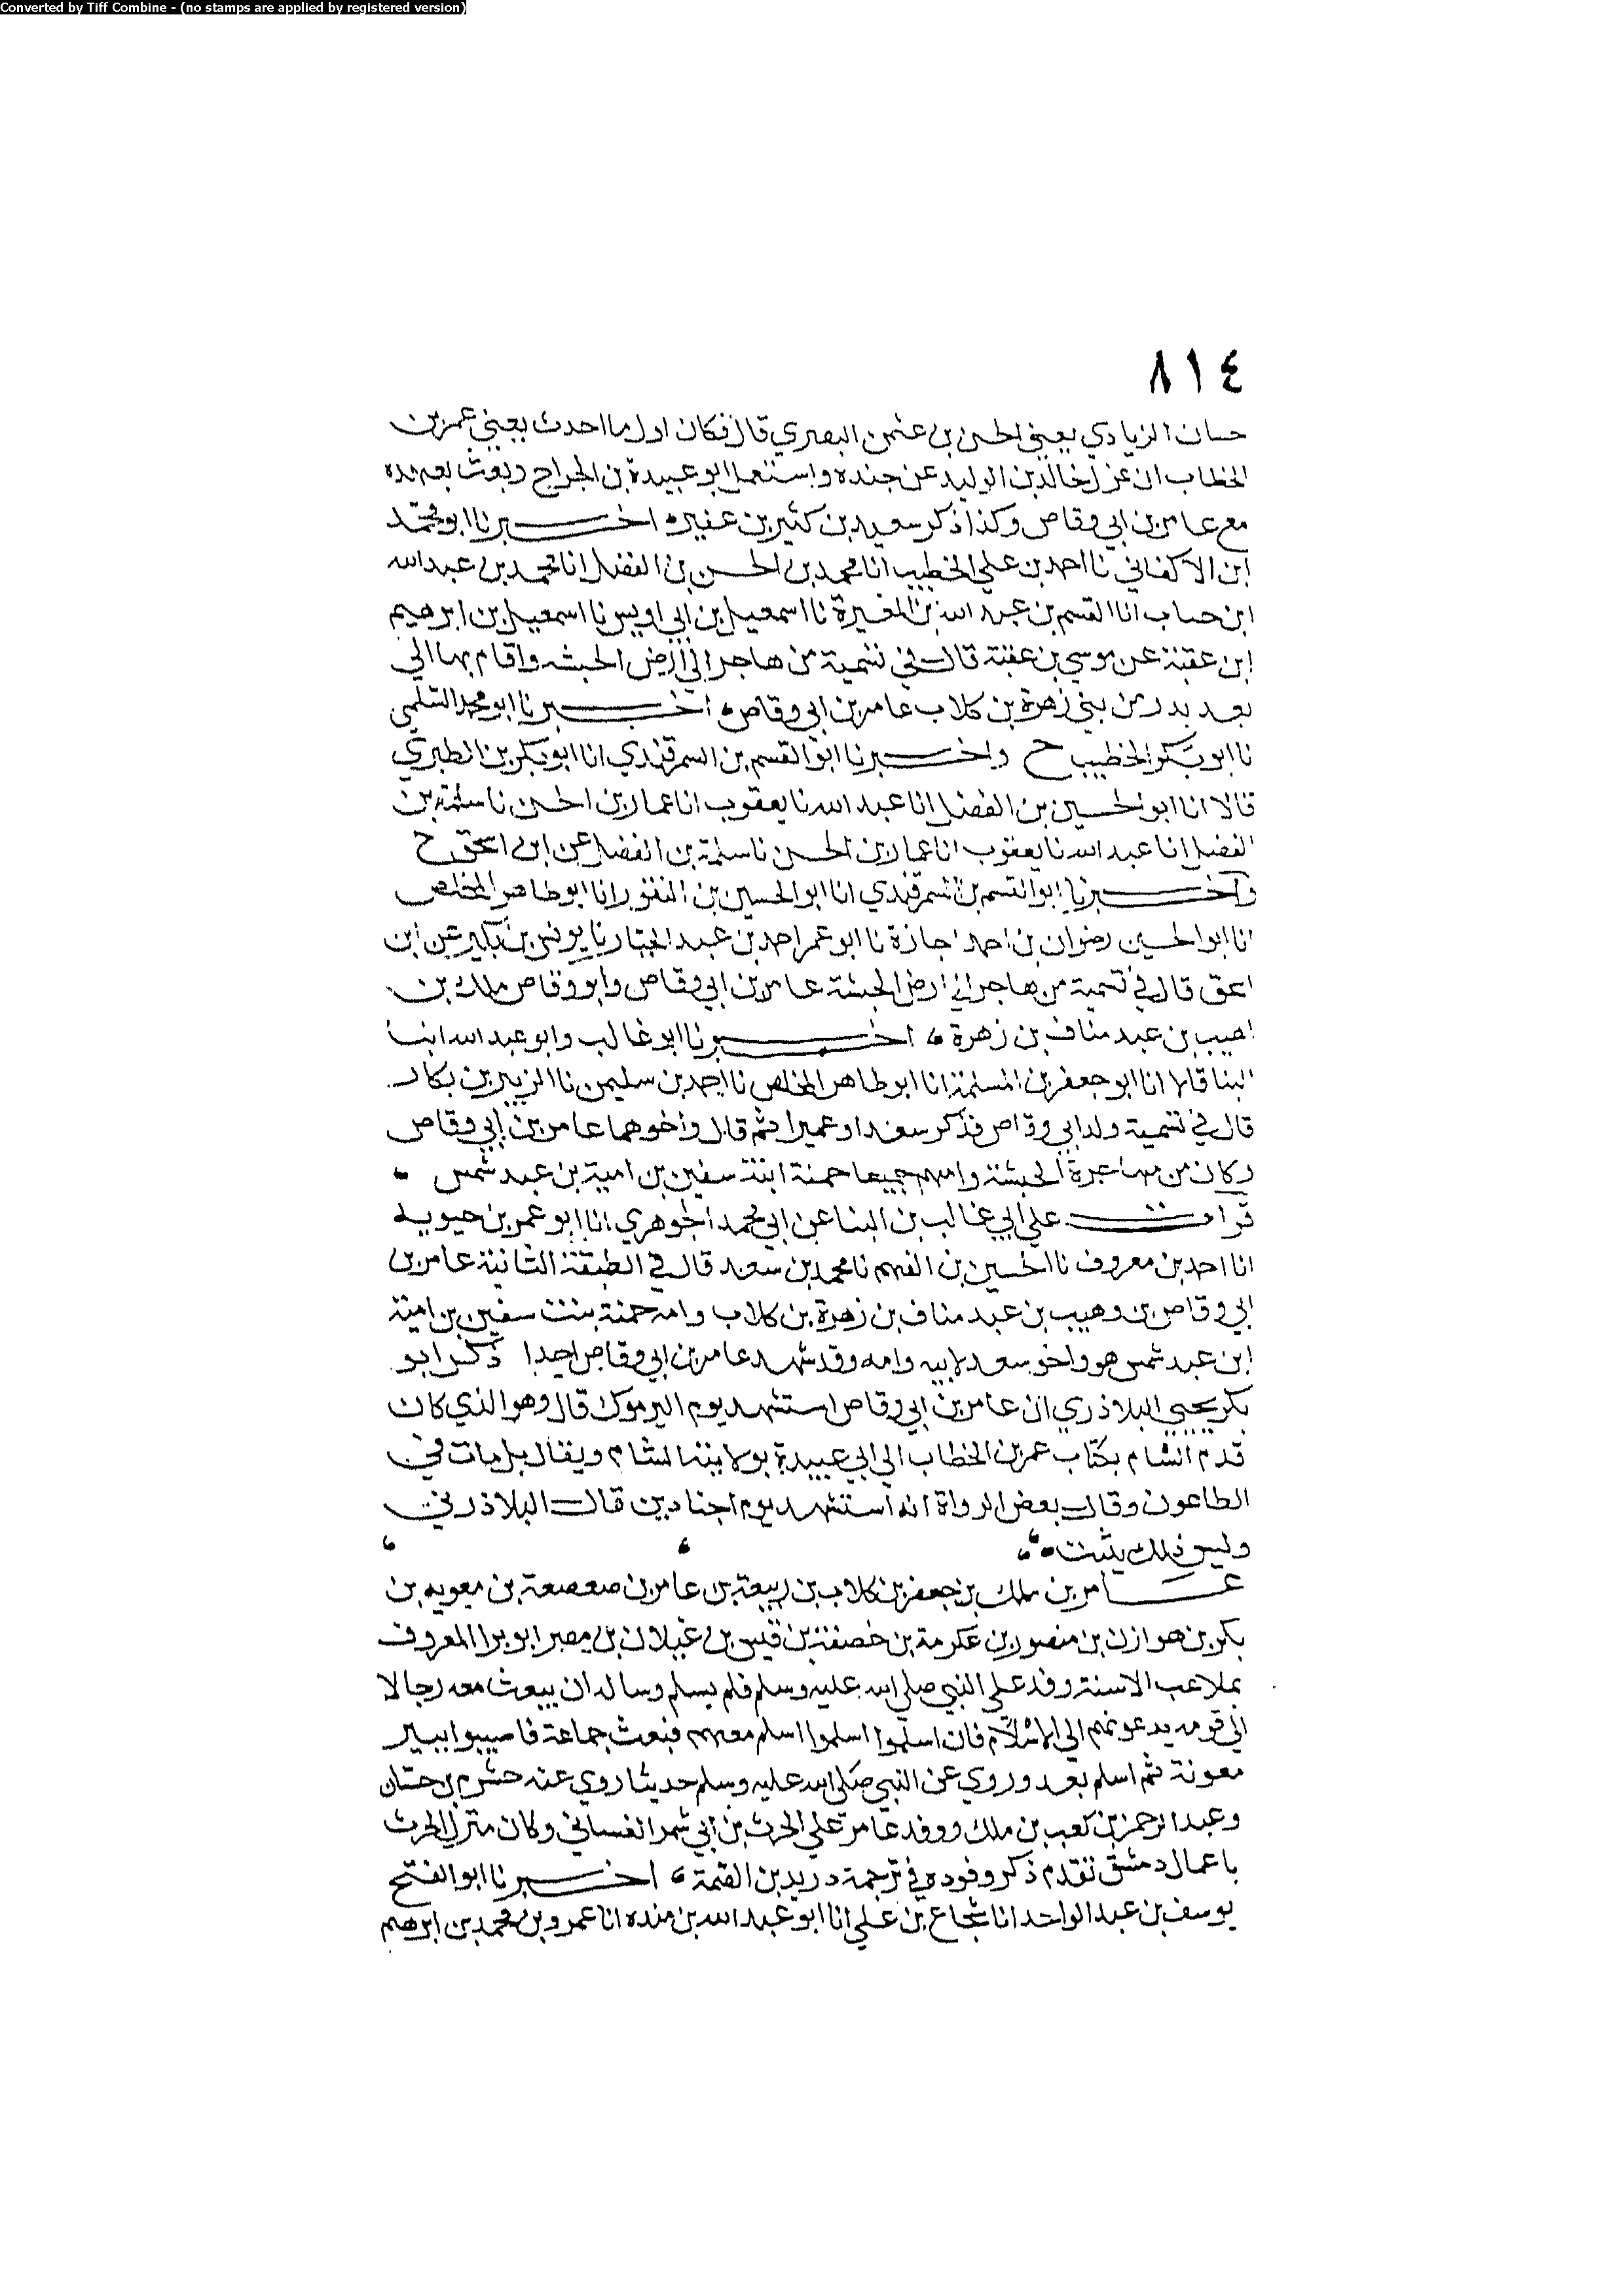 Converted by Tiff Combine - (no stamps are applied by registered version)
٨١٤
حسان الزيادي يعني الحسن بن عثمن البصري قال فكان اول ما احدث يعني عمر بن
الخطاب ان عزل خالد بن الوليد عن جنده واستعمل ابو عبيدة بن الجراح وبعث بعهده
مع عامر بن ابي وقاص وكذا ذكر سعيد بن كثير بن عفير اخبرنا ابو محمد
ابن الاكفاني نا احمد بن علي الخطيب انا محمد بن الحسن بن الفضل انا محمد بن عبد الله
ابن حساب انا القسم بن عبد الله بن المغيرة نا اسمعيل بن ابي اويس نا اسمعيل بن ابرهيم
ابن عقبة عن موسي بن عقبة قال في تسمية من هاجر الي ارض الحبشه واقام بها الي
بعد بدر من بني زهرة بن كلاب عامر بن ابي وقاص اخبرنا ابو محمد السلمي
نا ابو بكر الخطيب ح واخبرنا ابو القسم بن السمرقندي انا ابو بكر بن الطبري
قالا انا ابو الحسين بن الفضل انا عبد الله نا يعقوب انا عمار بن الحسن نا سلمة بن
الفضل انا عبد الله نا يعقوب انا عمار بن الحسن نا سلمة بن الفضل عن ابن اسحق ح
واخبرنا ابو القسم بن السمرقندي انا ابو الحسين بن النقور انا ابو طاهر المخلص
انا ابو الحسين رضوان بن احمد اجازة نا ابو عمر احمد بن عبد الجبار نا يونس بن بكير عن ابن
اسحق قال في تسمية من هاجر الي ارض الحبشة عامر بن ابي وقاص وابو وقاص ملك بن
اهيب بن عبد مناف بن زهرة اخبرنا ابو غالب وابو عبد الله ابنا
البنا قالا انا ابو جعفر بن المسلمة انا ابو طاهر المخلص نا احمد بن سليمن نا الزبير بن بكار
قال في تسمية ولد ابي وقاص فذكر سعدا وعميرا ثم قال واخوهما عامر بن ابي وقاص
وكان من مهاجرة الحبشة وامهم جميعا حمنة ابنة سفين بن امية بن عبد شمس
قرات علي ابي غالب بن البنا عن ابي محمد الجوهري انا ابو عمر بن حيويه
انا احمد بن معروف نا الحسين بن الفهم نا محمد بن سعد قال في الطبقة الثانية عامر بن
ابي وقاص بن وهيب بن عبد مناف بن زهرة بن كلاب وامه حمنة بنت سفين بن امية
ابن عبد شمس هو واخو سعد لابيه وامه وقد شهد عامر بن ابي وقاص احدا ذكر ابو
بكر يحيي البلاذري ان عامر بن ابي وقاص استشهد يوم اليرموك قال وهو الذي كان
قدم الشام بكتاب عمر بن الخطاب الي ابي عبيدة بولايته الشام ويقال بل مات في
الطاعون وقال بعض الرواة انه استشهد يوم اجنادين قال البلاذري
وليس ذلك يثبت
عامر بن ملك بن جعفر بن كلاب بن ربيعة بن عامر بن صعصعة بن معويه بن
بكر بن هوازن بن منصور بن عكرمة بن خصفة بن قيس بن عيلان بن مضر ابو برا المعروف
بملاعب الاسنة وفد علي النبي صلي الله عليه وسلم فلم يسلم وساله ان يبعث معه رجالا
الي قومه يدعونهم الي الاسلام فان اسلموا اسلم معهم فبعث جماعة فاصيبوا ببير
معونة ثم اسلم بعد وروي عن النبي صلي الله عليه وسلم حديثا روي عنه خشرم بن حسان
وعبد الرحمن بن كعب بن ملك ووفد عامر علي الحرث بن ابي شمر الغساني وكان منزل الحرث
باعمال دمشق تقدم ذكر وفوده في ترجمة دريد بن الصمة اخبرنا ابو الفتح
يوسف بن عبد الواحد انا شجاع بن علي انا ابو عبد الله بن منده انا عمرو بن محمد بن ابرهيم